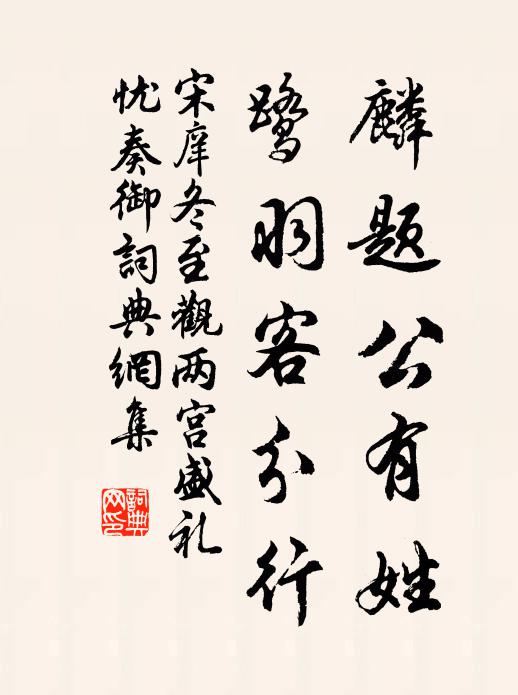 麟题公有姓
鹭羽客分行
宋庠冬至觀两宫盛礼
忱奏御詞典網集
詞典
网印